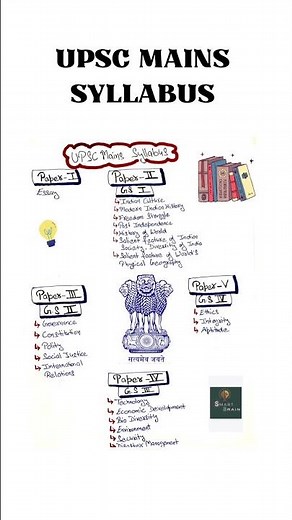 UPSC MAINS
SYLLABUS
UPSC Mains Syllabus
Paper-I
Essay
Paper-II
GS I
Indian Culture
Modern Indian History
Freedom Struggle
Post Independence
History of World
Salient feature of Indian
Society, Diversity of India
Salient feature of World's
Physical Geography
Paper-III
GS II
Governance
Constitution
Polity
Social Justice
International
Relations
सत्यमेव जयते
Paper-V
GS IV
Ethics
Integrity
Aptitude
Paper-IV
GS III
Technology
Economic Development
Bio Diversity
Environment
Security
Disaster Management
SMART
BRAIN